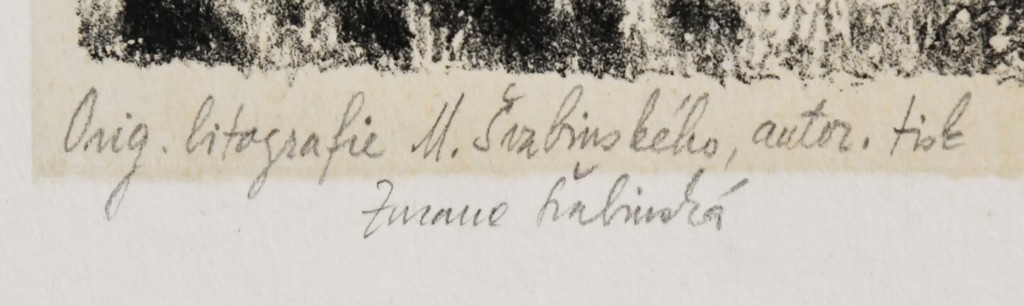 Orig. litografie M. Švabinského, autor. tisk
Zuzana Švabinská